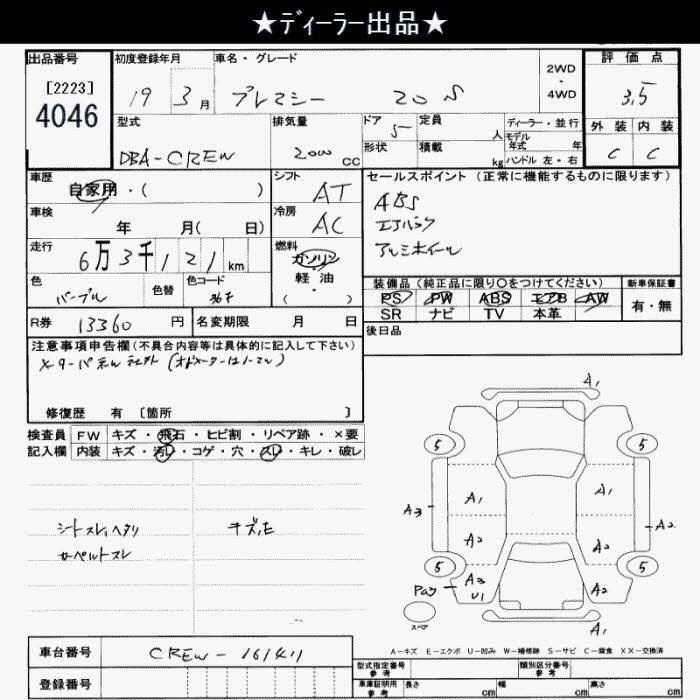 ★ディーラー出品★
出品番号
[2223]
4046
初度登録年月
19 3月
車名・グレード
プレマシー 20S
2WD
・
4WD
評価点
3.5
型式
DBA-CREW
排気量
2000 CC
ドア 5
定員 人
形状
積載 kg
ディーラー・並行
モデル年式 年
ハンドル 左・右
外装 内装
C C
車歴
自家用・( )
シフト AT
車検
年 月( 日)
冷房 AC
走行
6万3千121km
燃料
ガソリン
・
軽油
( )
色
パープル
色替
色コード
R券 13360円
名変期限 月 日
セールスポイント (正常に機能するものに限ります)
ABS
エアバック
アルミホイール
装備品 (純正品に限り〇をつけてください)
新車保証書
PS PW ABS エアB AW
SR ナビ TV 本革
有・無
後日品
注意事項申告欄 (不具合内容等は具体的に記入して下さい)
修復歴 有 〔箇所 〕
検査員
記入欄
FW キズ・飛石・ヒビ割・リペア跡・×要
内装 キズ・汚れ・コゲ・穴・スレ・キレ・破レ
シートスレ,ヘタリ
カーペットスレ
A1
5 5
A1 A1
A3 A2
A2 A2
5 5
A3
U1
A2
スペア
A1
A-キズ E-エクボ U-凹み W-補修跡 S-サビ C-腐食 XX-交換済
車台番号 CREW-161411
登録番号
型式指定番号
参考
類別区分番号
参考
車庫証明用
参考
長さ cm
幅 cm
高さ cm